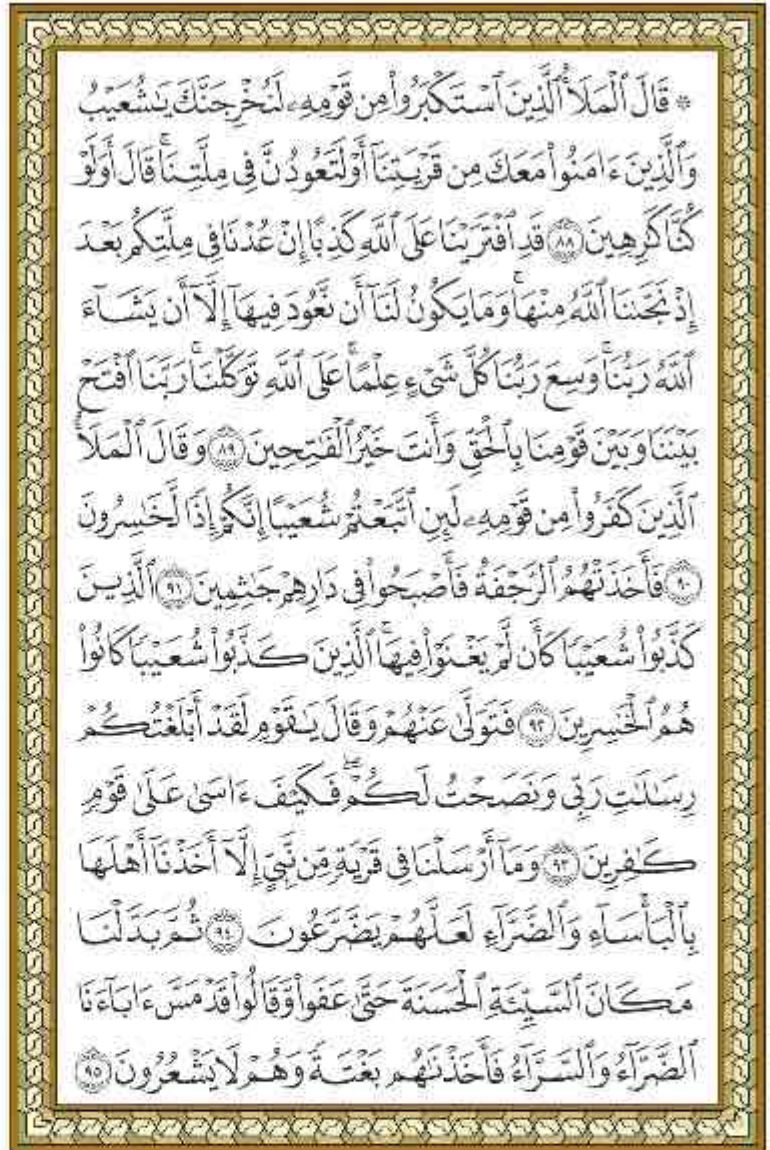 ۞ قَالَ ٱلْمَلَأُ ٱلَّذِينَ ٱسْتَكْبَرُوا۟ مِن قَوْمِهِۦ لَنُخْرِجَنَّكَ يَـٰشُعَيْبُ
وَٱلَّذِينَ ءَامَنُوا۟ مَعَكَ مِن قَرْيَتِنَآ أَوْ لَتَعُودُنَّ فِى مِلَّتِنَا ۚ قَالَ أَوَلَوْ
كُنَّا كَـٰرِهِينَ ٨٨ قَدِ ٱفْتَرَيْنَا عَلَى ٱللَّهِ كَذِبًا إِنْ عُدْنَا فِى مِلَّتِكُم بَعْدَ
إِذْ نَجَّىٰنَا ٱللَّهُ مِنْهَا ۚ وَمَا يَكُونُ لَنَآ أَن نَّعُودَ فِيهَآ إِلَّآ أَن يَشَآءَ
ٱللَّهُ رَبُّنَا ۚ وَسِعَ رَبُّنَا كُلَّ شَىْءٍ عِلْمًا ۚ عَلَى ٱللَّهِ تَوَكَّلْنَا ۚ رَبَّنَا ٱفْتَحْ
بَيْنَنَا وَبَيْنَ قَوْمِنَا بِٱلْحَقِّ وَأَنتَ خَيْرُ ٱلْفَـٰتِحِينَ ٨٩ وَقَالَ ٱلْمَلَأُ
ٱلَّذِينَ كَفَرُوا۟ مِن قَوْمِهِۦ لَئِنِ ٱتَّبَعْتُمْ شُعَيْبًا إِنَّكُمْ إِذًا لَّخَـٰسِرُونَ
٩٠ فَأَخَذَتْهُمُ ٱلرَّجْفَةُ فَأَصْبَحُوا۟ فِى دَارِهِمْ جَـٰثِمِينَ ٩١ ٱلَّذِينَ
كَذَّبُوا۟ شُعَيْبًا كَأَن لَّمْ يَغْنَوْا۟ فِيهَا ۚ ٱلَّذِينَ كَذَّبُوا۟ شُعَيْبًا كَانُوا۟
هُمُ ٱلْخَـٰسِرِينَ ٩٢ فَتَوَلَّىٰ عَنْهُمْ وَقَالَ يَـٰقَوْمِ لَقَدْ أَبْلَغْتُكُمْ
رِسَـٰلَـٰتِ رَبِّى وَنَصَحْتُ لَكُمْ ۖ فَكَيْفَ ءَاسَىٰ عَلَىٰ قَوْمٍ
كَـٰفِرِينَ ٩٣ وَمَآ أَرْسَلْنَا فِى قَرْيَةٍ مِّن نَّبِىٍّ إِلَّآ أَخَذْنَآ أَهْلَهَا
بِٱلْبَأْسَآءِ وَٱلضَّرَّآءِ لَعَلَّهُمْ يَضَّرَّعُونَ ٩٤ ثُمَّ بَدَّلْنَا
مَكَانَ ٱلسَّيِّئَةِ ٱلْحَسَنَةَ حَتَّىٰ عَفَوا۟ وَّقَالُوا۟ قَدْ مَسَّ ءَابَآءَنَا
ٱلضَّرَّآءُ وَٱلسَّرَّآءُ فَأَخَذْنَـٰهُم بَغْتَةً وَهُمْ لَا يَشْعُرُونَ ٩٥